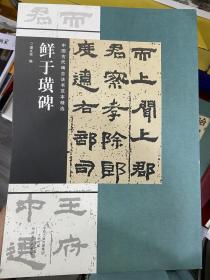 君而
中国古代碑帖法书范本精选
鲜于璜碑
而上聞上郡
君察孝除郎
度遼右部司
王府
中遷